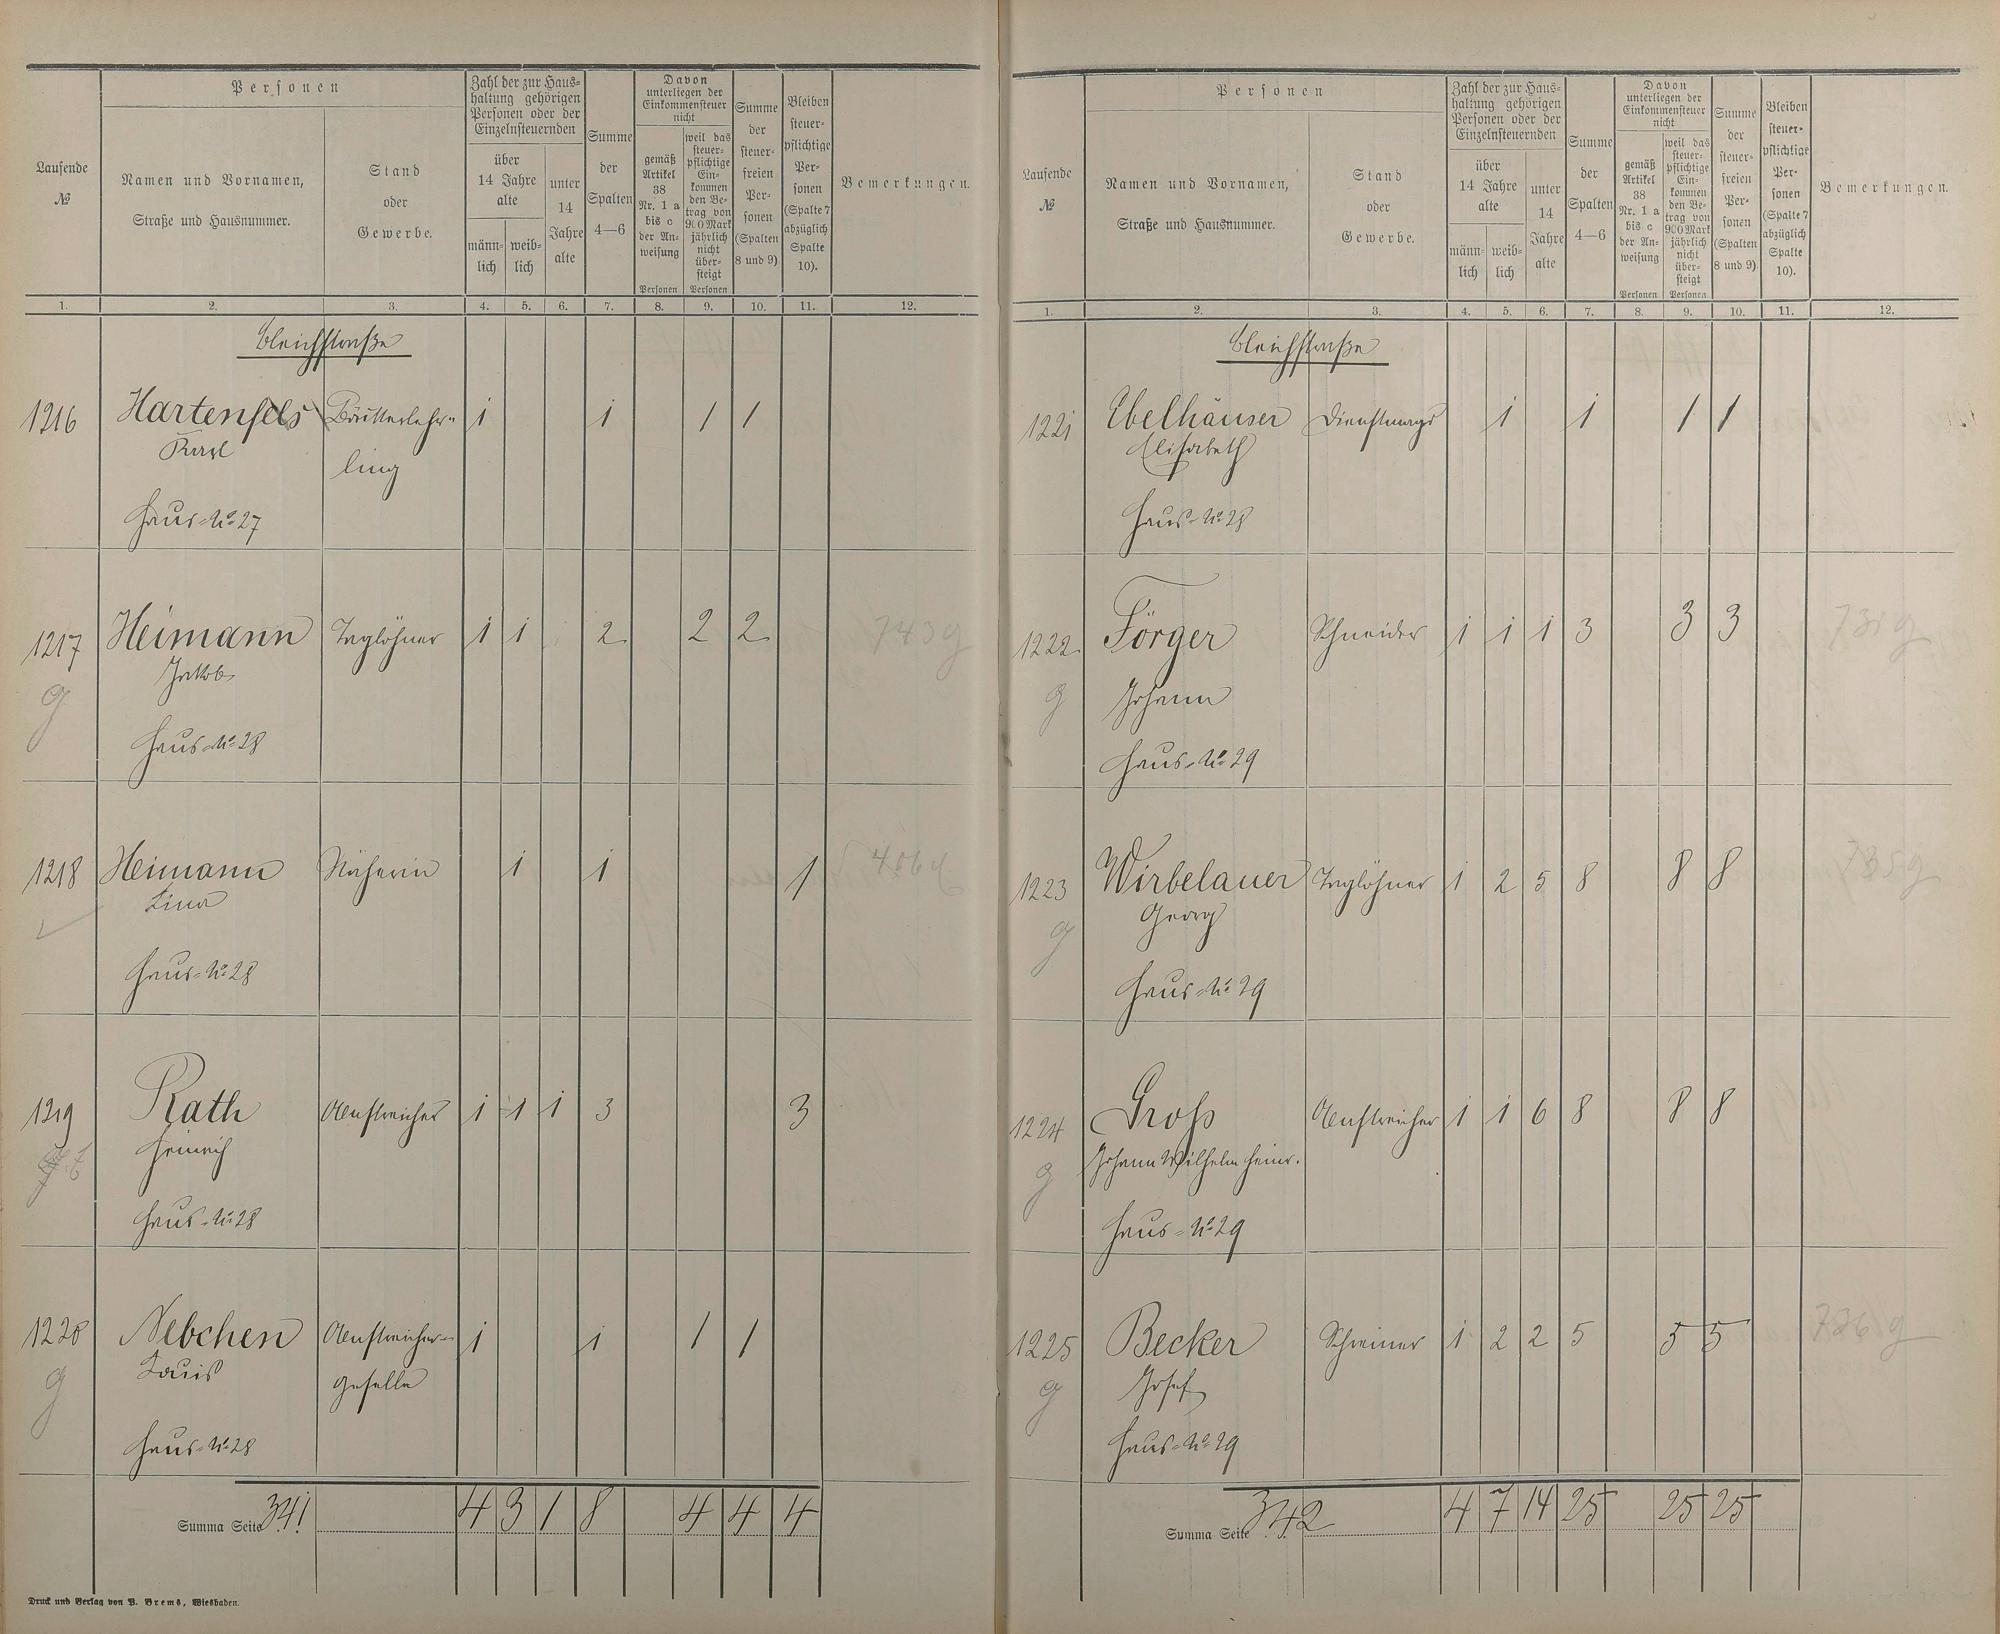 Laufende
№
Personen
Namen und Vornamen,
Straße und Hausnummer.
Stand
oder
Gewerbe.
Zahl der zur Haus-
haltung gehörigen
Personen oder der
Einzelnsteuernden
über
14 Jahre
alte
männ-
lich
weib-
lich
unter
14
Jahre
alte
Summe
der
Spalten
4—6
Davon
unterliegen der
Einkommensteuer
nicht
gemäß
Artikel
38
Nr. 1 a
bis c
der An-
weisung
Personen
weil das
steuer-
pflichtige
Ein-
kommen
den Be-
trag von
900 Mark
jährlich
nicht
über-
steigt
Personen
Summe
der
steuer-
freien
Per-
sonen
(Spalten
8 und 9).
Bleiben
steuer-
pflichtige
Per-
sonen
(Spalte 7
abzüglich
Spalte
10).
Bemerkungen.
1. 2. 3. 4. 5. 6. 7. 8. 9. 10. 11. 12.
Bleichstraße
1216 Hartenfels 1 1 1 1
Karl ling
Haus-No 27
1217 Heimann Taglöhner 1 1 2 2 2 743 g
Jakob
g
Haus-No 28
1218 Heimann Näherin 1 1 1
Lina
Haus-No 28
1219 Rath Anstreicher 1 1 1 3 3
Heinrich
Haus-No 28
1220 Nebchen Anstreicher- 1 1 1 1
Louis geselle
g
Haus-No 28
Summa Seite 341 4 3 1 8 4 4 4
Druck und Verlag von P. Brems, Wiesbaden.
Laufende
№
Personen
Namen und Vornamen,
Straße und Hausnummer.
Stand
oder
Gewerbe.
Zahl der zur Haus-
haltung gehörigen
Personen oder der
Einzelnsteuernden
über
14 Jahre
alte
männ-
lich
weib-
lich
unter
14
Jahre
alte
Summe
der
Spalten
4—6
Davon
unterliegen der
Einkommensteuer
nicht
gemäß
Artikel
38
Nr. 1 a
bis c
der An-
weisung
Personen
weil das
steuer-
pflichtige
Ein-
kommen
den Be-
trag von
900 Mark
jährlich
nicht
über-
steigt
Personen
Summe
der
steuer-
freien
Per-
sonen
(Spalten
8 und 9).
Bleiben
steuer-
pflichtige
Per-
sonen
(Spalte 7
abzüglich
Spalte
10).
Bemerkungen.
1. 2. 3. 4. 5. 6. 7. 8. 9. 10. 11. 12.
Bleichstraße
1221 Ebelhäuser Dienstmagd 1 1 1 1
Elisabeth
Haus-No 28
1222 Förger Schneider 1 1 1 3 3 3 731 g
g Johann
Haus-No 29
1223 Wirbelauer Taglöhner 1 2 5 8 8 8 735 g
Georg
g
Haus-No 29
1224 Groß Anstreicher 1 1 6 8 8 8
Johann Wilhelm Heinr.
g
Haus-No 29
1225 Becker Schreiner 1 2 2 5 5 5 736 g
g Josef
Haus-No 29
Summa Seite 342 4 7 14 25 25 25